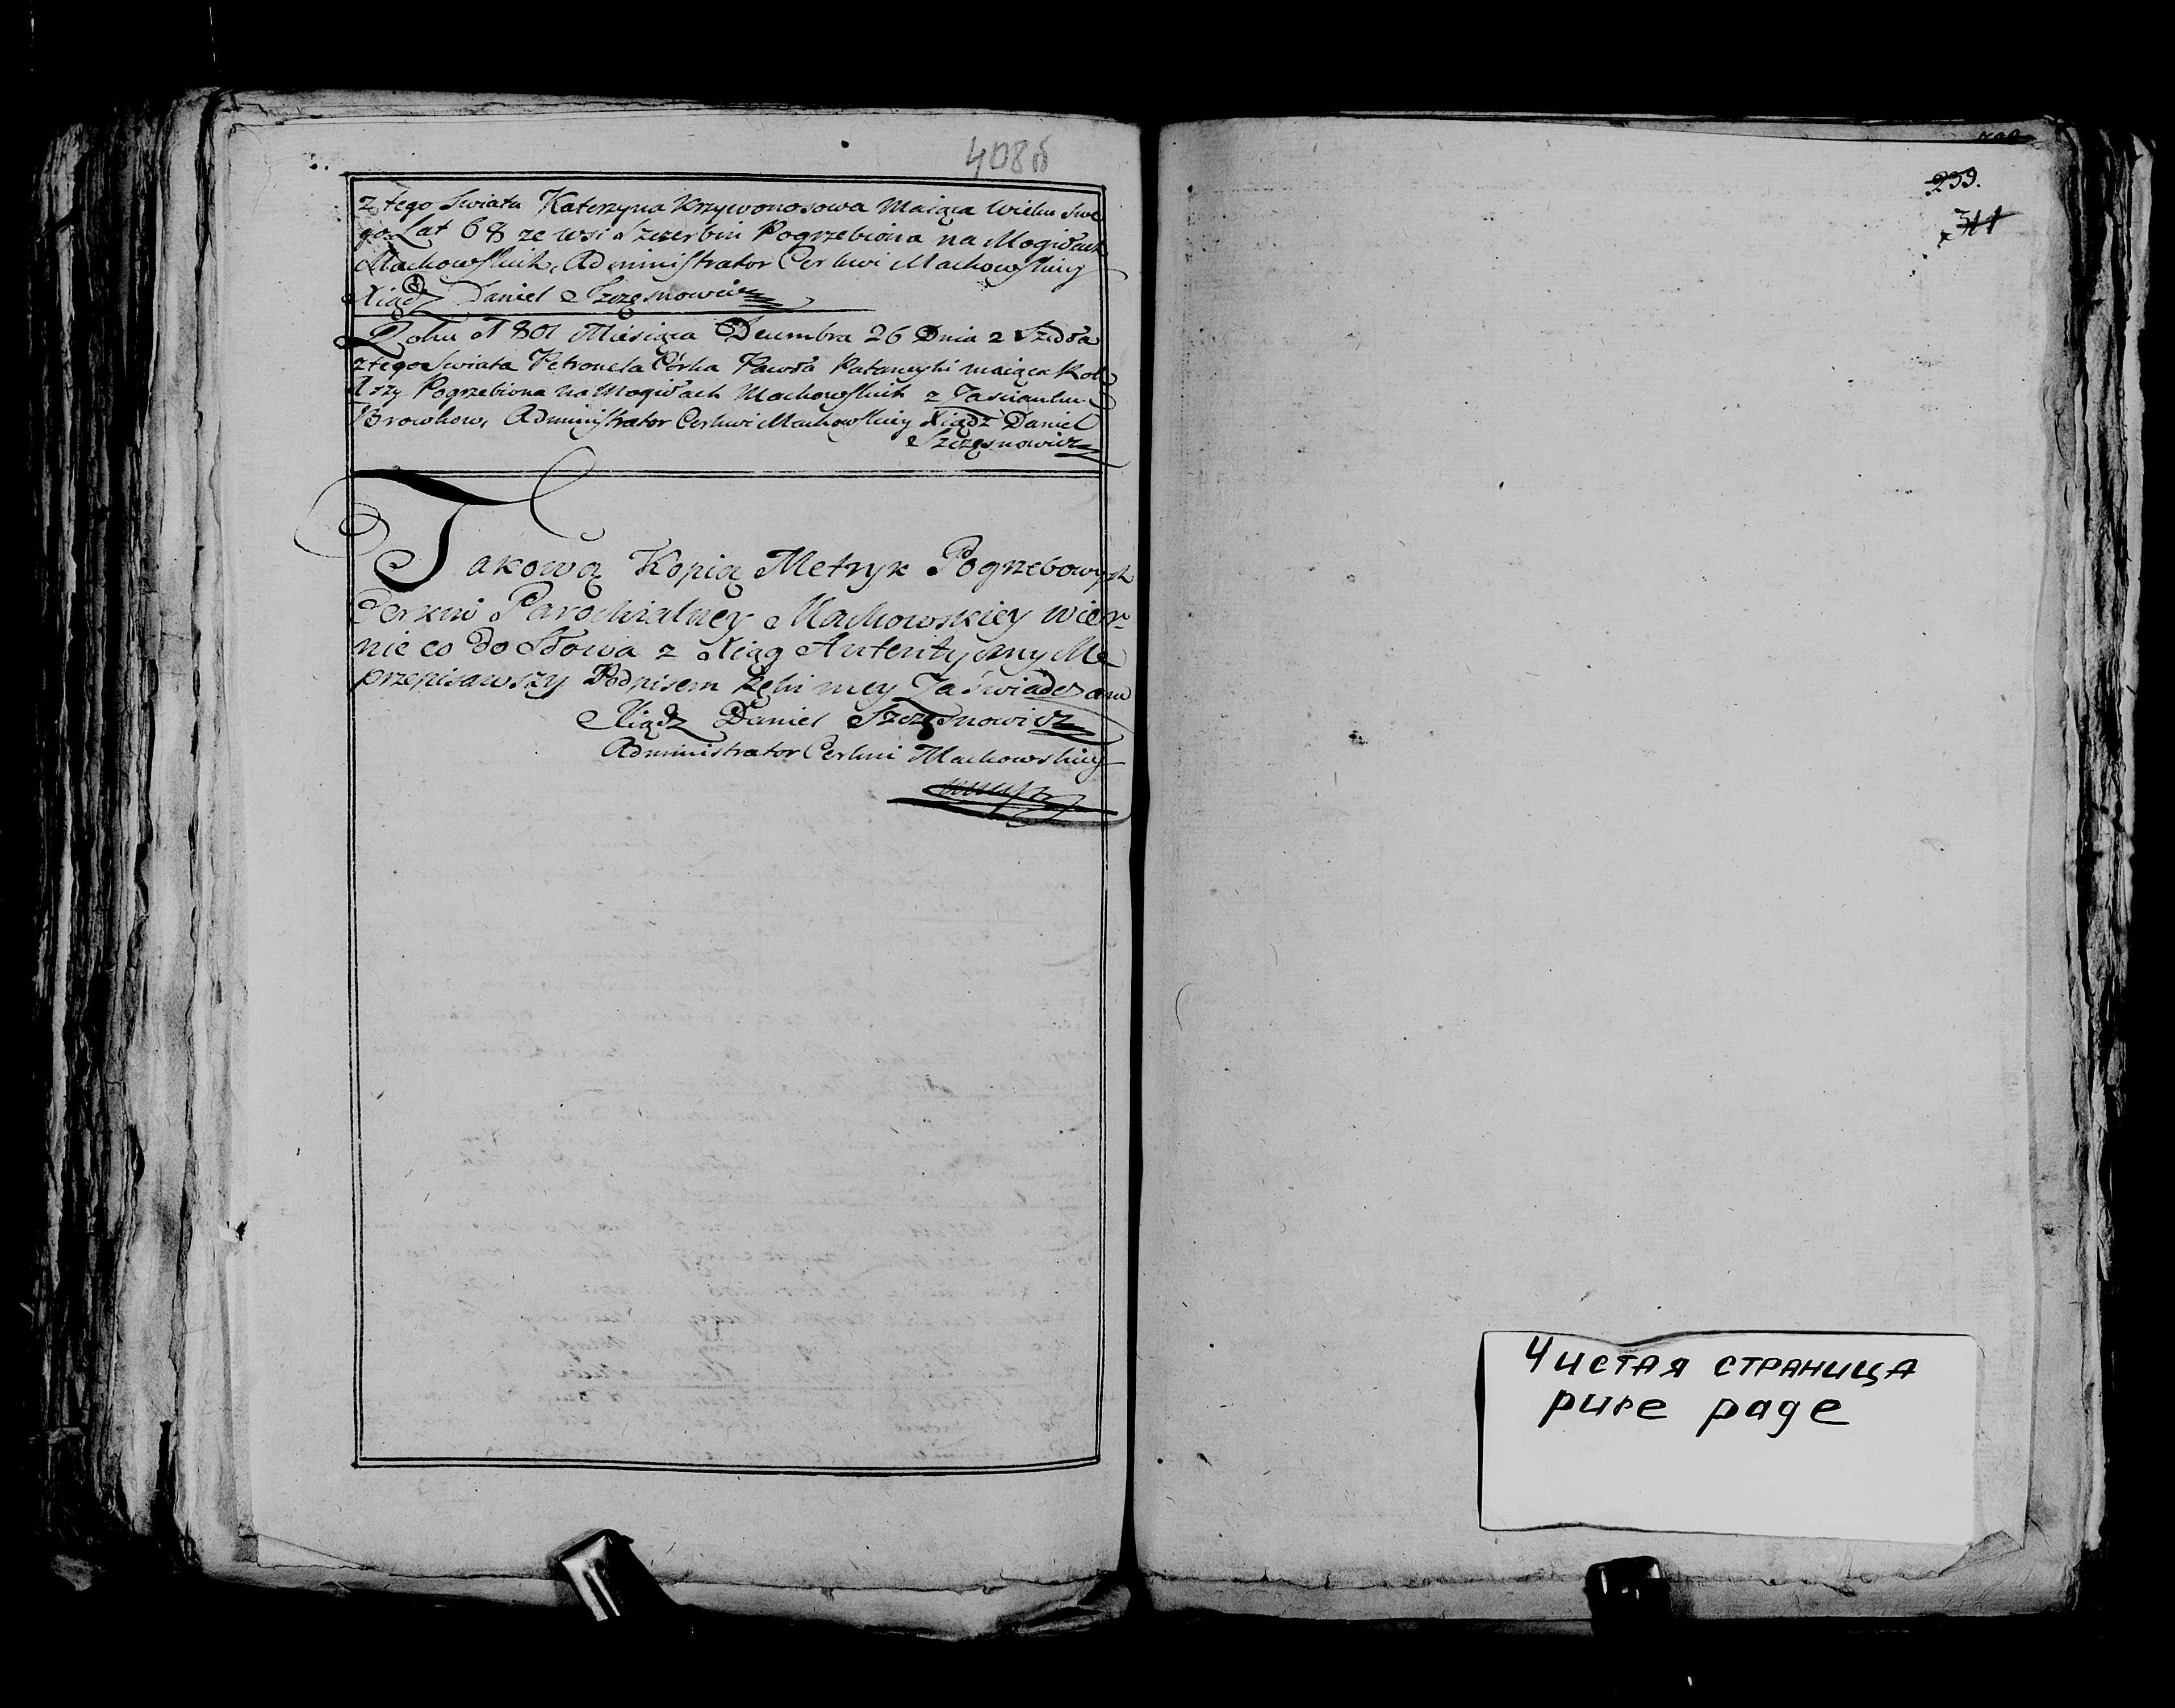 408б
z tego Swiata Katerzyna Krzywonosowa Maiąca Wieku Swe
go Lat 68 ze wsi Szczerbin Pogrzebiona na Mogiłach
Machowskich, Administrator Cerkwi Machowskiey
Xiądz Daniel Szczęsnowicz
Roku 1801 Miesiąca Decembra 26 Dnia Szedła
z tego Swiata Petronela Córka Pawła maiąca Rok
1 Pogrzebiona na Mogiłach Machowskich z Zascianku
Browkow, Administrator Cerkwi Machowskiey Xiądz Daniel
Szczęsnowicz
Takową Kopią Metryk Pogrzebowych
Cerkwi Parochialney Machowskiey wier-
nie co do Słowa z Xiąg Autentycznych Me
przepisawszy Podpisem Ręki mey Zaświadczam
Xiądz Daniel Szczęsnowicz
Administrator Cerkwi Machowskiey
239.
311
Чистая страница
pure page